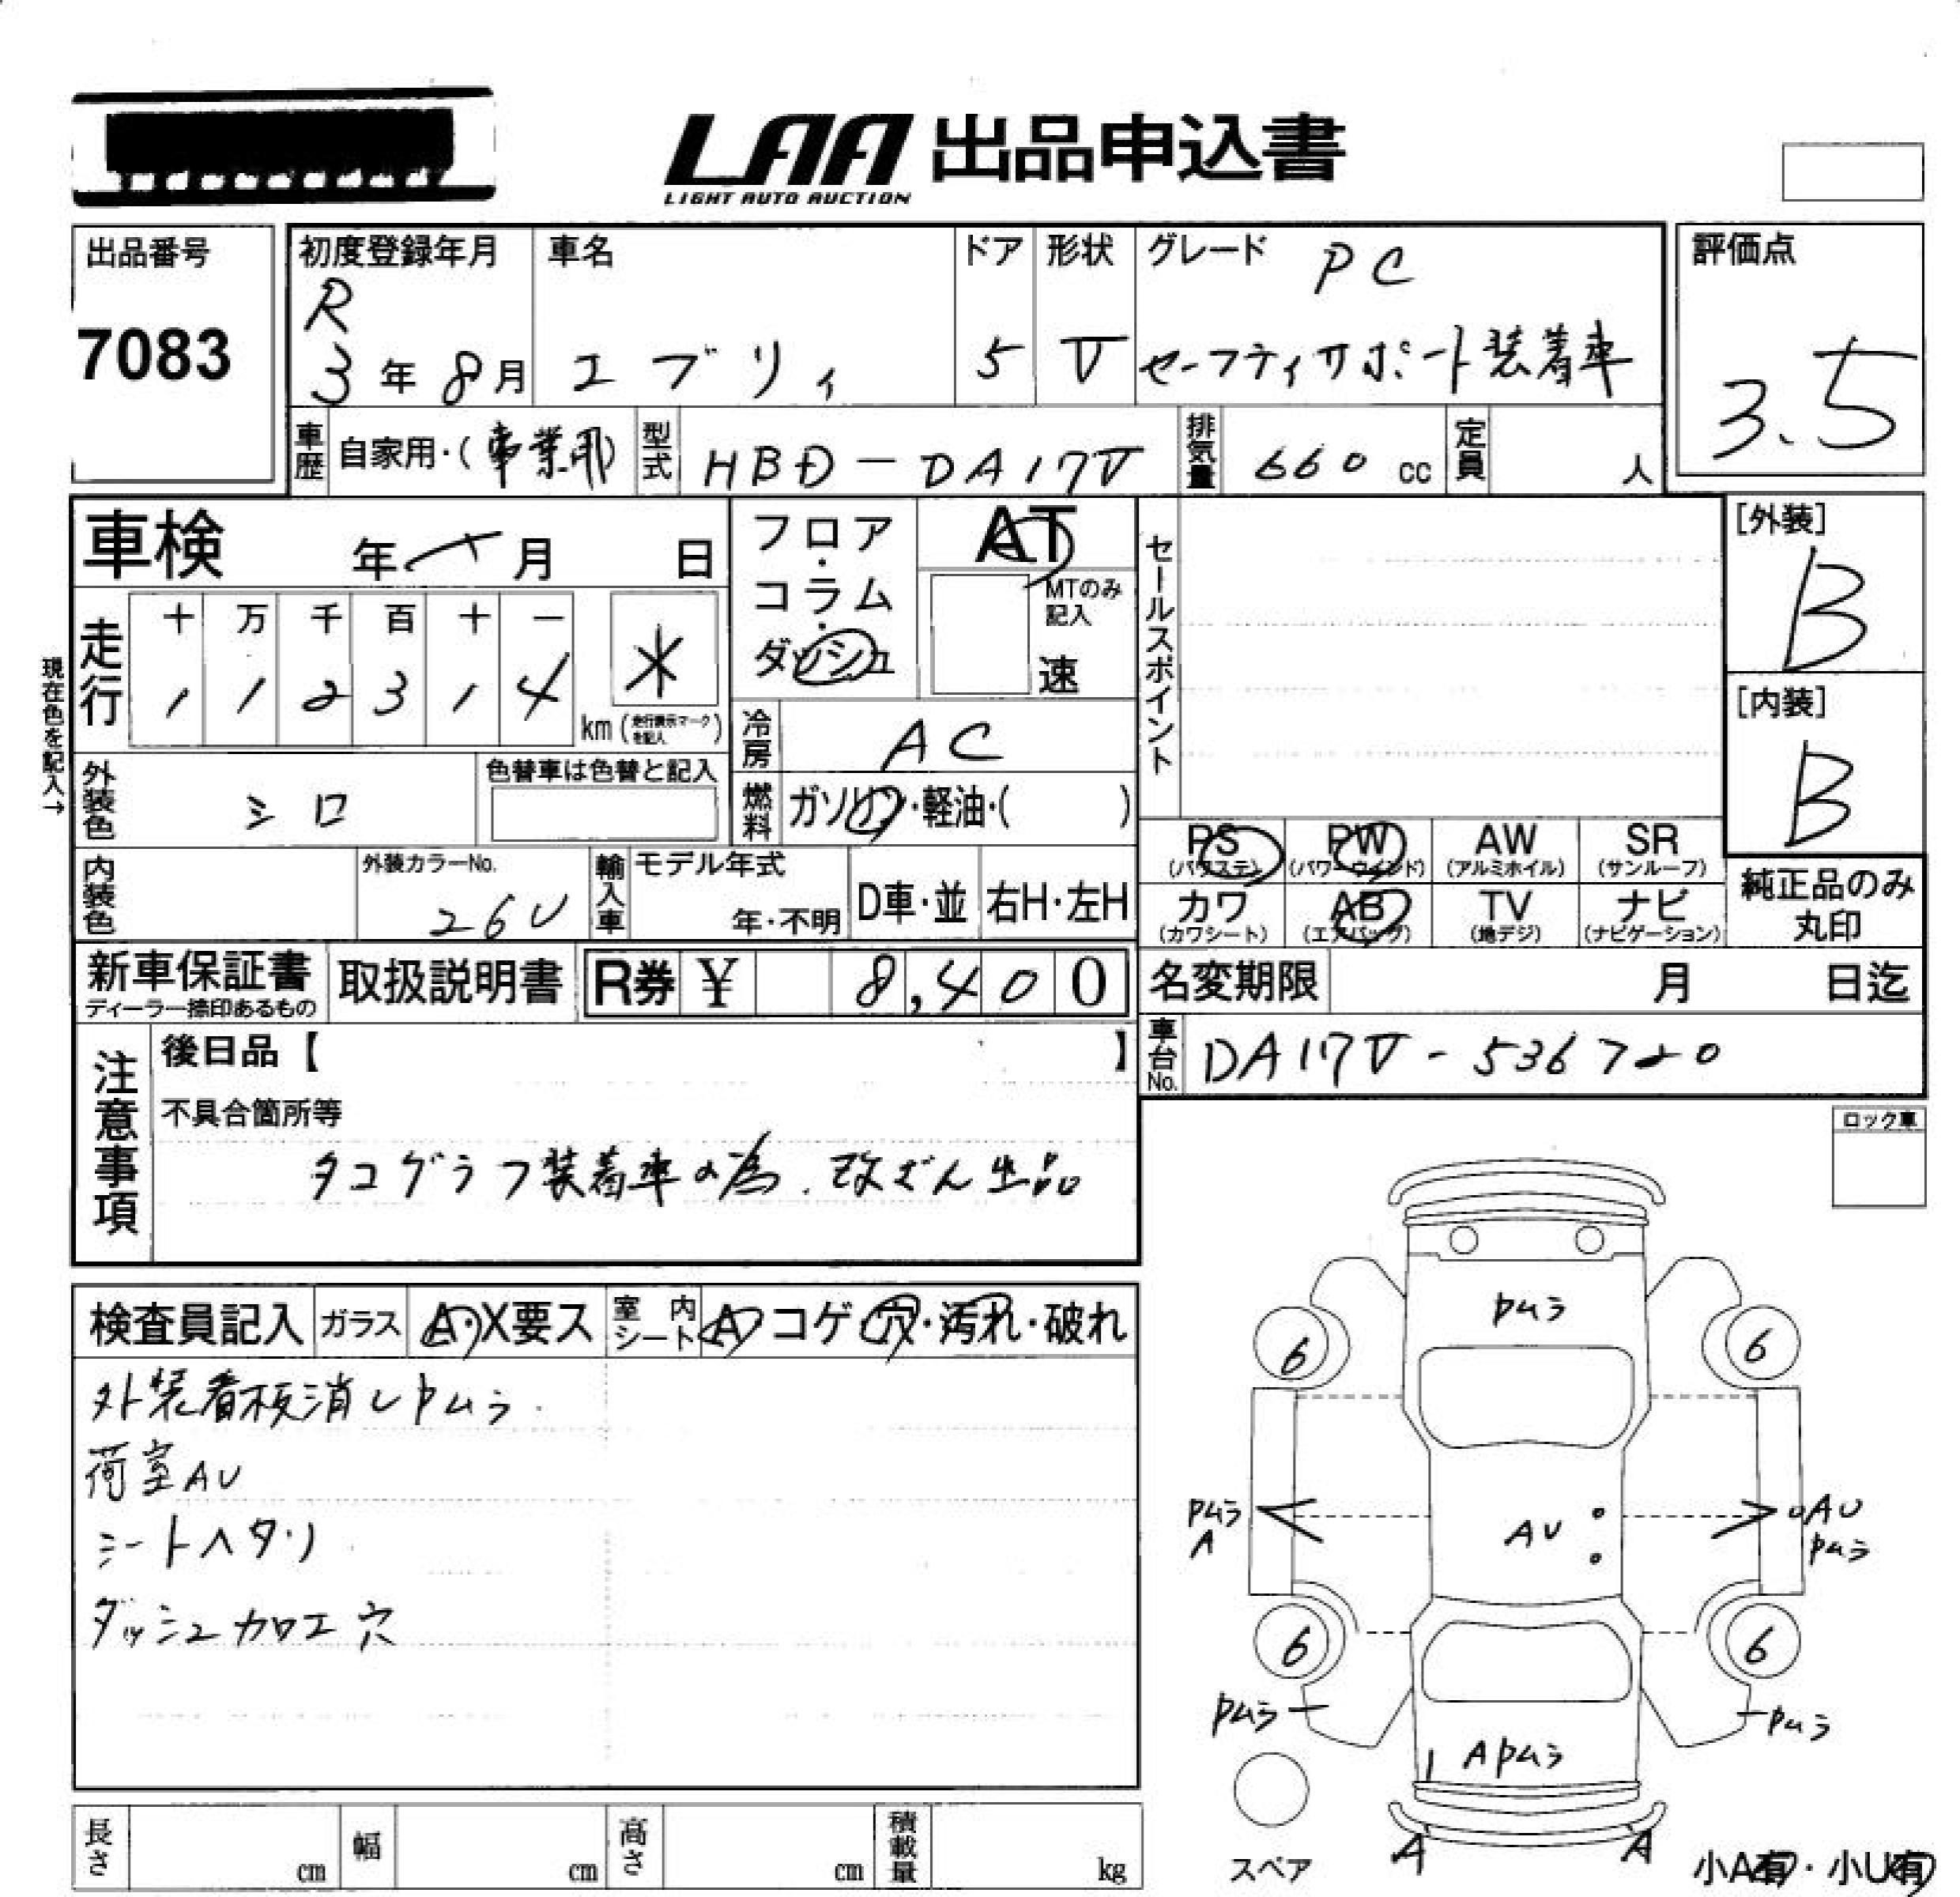 LAA 出品申込書
LIGHT AUTO AUCTION
出品番号
7083
初度登録年月
R
3年8月
車名
エブリィ
ドア
5
形状
V
グレード PC
セーフティサポート装着車
評価点
3.5
車歴 自家用・(事業用)
型式 HBD-DA17V
排気量 660 cc
定員 人
車検 年 月 日
フロア・コラム・ダッシュ
AT
MTのみ記入
速
セールスポイント
[外装]
B
[内装]
B
現在色を記入→
走行
十 万 千 百 十 一
1 1 2 3 1 4 km
*
(走行表示マークを記入)
冷房 AC
燃料 ガソリン・軽油・( )
外装色 シロ
色替車は色替と記入
内装色
外装カラーNo.
26U
輸入車 モデル年式
年・不明
D車・並
右H・左H
PS (パワステ)
PW (パワーウインド)
AW (アルミホイル)
SR (サンルーフ)
カワ (カワシート)
AB (エアバッグ)
TV (地デジ)
ナビ (ナビゲーション)
純正品のみ
丸印
新車保証書
ディーラー捺印あるもの
取扱説明書
R券 ¥ 8,400
名変期限 月 日迄
車台No. DA17V-536720
注意事項
後日品【 】
不具合箇所等
タコグラフ装着車の為、改ざん出品
ロック車
検査員記入
ガラス A・X要ス
室内シート A コゲ・穴・汚れ・破れ
外装看板消しPムラ
荷室AU
シートヘタリ
ダッシュ加工穴
Pムラ
6
6
Pムラ
A
AU
AU
Pムラ
6
6
Pムラ
Pムラ
APムラ
A
A
スペア
小A有・小U有
長さ cm
幅 cm
高さ cm
積載量 kg